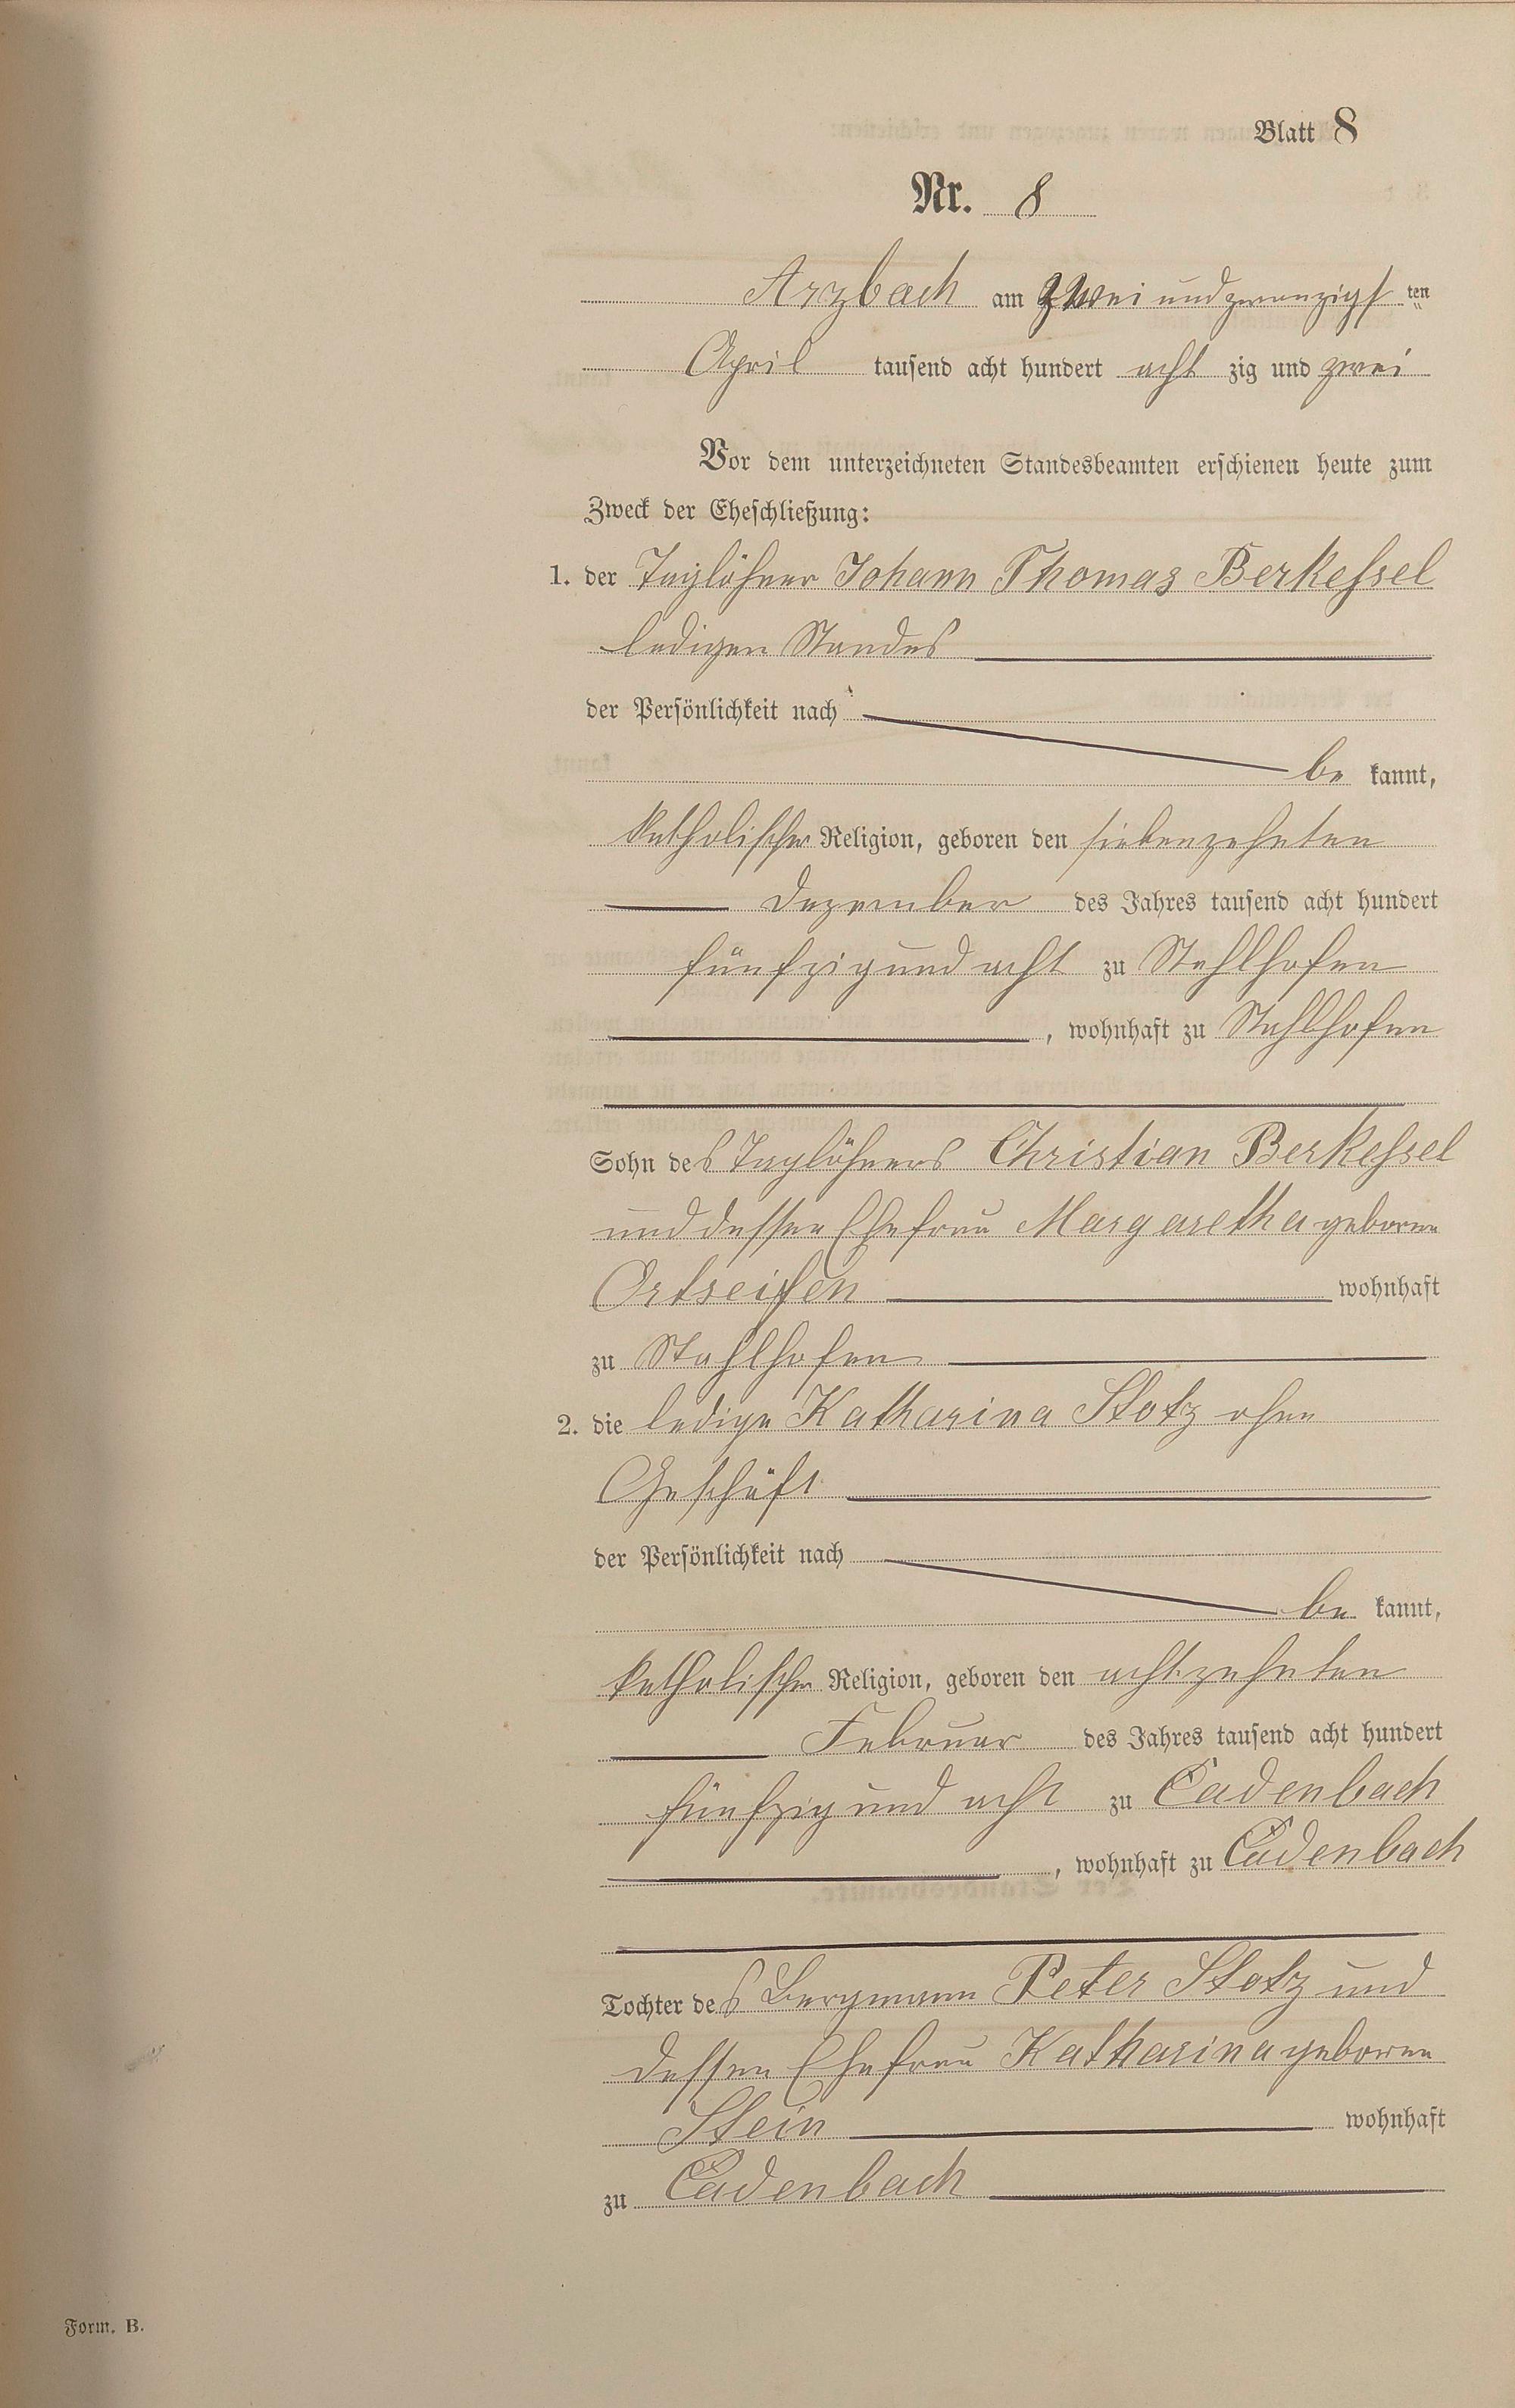 Blatt 8
Nr. 8
Arzbach am zwei und zwanzigsten
April tausend acht hundert acht zig und zwei
Vor dem unterzeichneten Standesbeamten erschienen heute zum
Zweck der Eheschließung:
1. der Taglöhner Johann Thomas Berkeſsel
ledigen Standes
der Persönlichkeit nach
be kannt,
katholischer Religion, geboren den siebenzehnten
Dezember des Jahres tausend acht hundert
fünfzig und acht zu Stahlhofen
, wohnhaft zu Stahlhofen
Sohn des Taglöhners Christian Berkeſsel
und dessen Ehefrau Margaretha geborene
Ortseifen wohnhaft
zu Stahlhofen
2. die ledige Katharina Stotz ohne
Geschäft
der Persönlichkeit nach
be kannt,
katholischer Religion, geboren den achtzehnten
Februar des Jahres tausend acht hundert
fünfzig und acht zu Cadenbach
, wohnhaft zu Cadenbach
Tochter des Bergmann Peter Stotz und
dessen Ehefrau Katharina geborene
Stein wohnhaft
zu Cadenbach
Form. B.